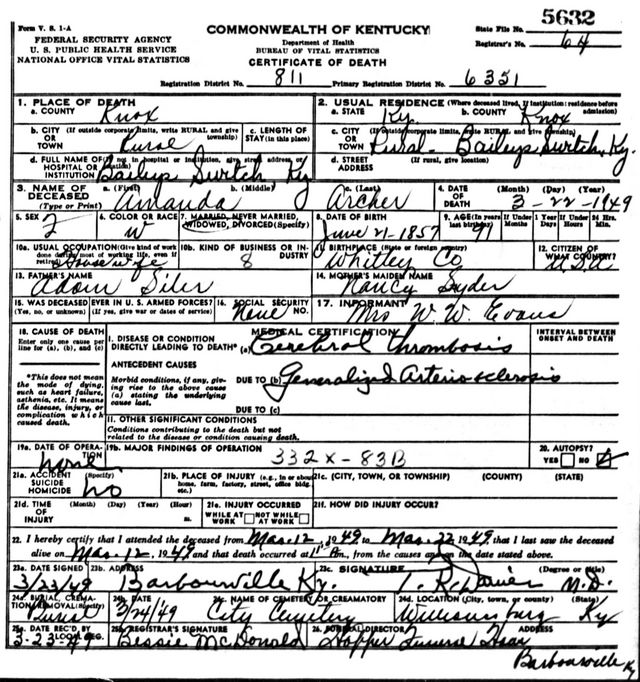 Form V. S. 1-A
FEDERAL SECURITY AGENCY
U. S. PUBLIC HEALTH SERVICE
NATIONAL OFFICE VITAL STATISTICS
COMMONWEALTH OF KENTUCKY
Department of Health
BUREAU OF VITAL STATISTICS
CERTIFICATE OF DEATH
5632
State File No.
Registrar's No. 64
Registration District No. 811 Primary Registration District No. 6351
1. PLACE OF DEATH
a. COUNTY Knox
2. USUAL RESIDENCE (Where deceased lived, If institution: residence before admission)
a. STATE Ky. b. COUNTY Knox
b. CITY (If outside corporate limits, write RURAL and give township) OR TOWN Rural
c. LENGTH OF STAY (in this place)
c. CITY (If outside corporate limits, write RURAL and give township) OR TOWN Rural - Baileys Switch, Ky.
d. FULL NAME OF (If not in hospital or institution, give street address or location) HOSPITAL OR INSTITUTION Baileys Switch, Ky
d. STREET ADDRESS (If rural, give location)
3. NAME OF DECEASED (Type or Print)
a. (First) Amanda b. (Middle) c. (Last) Archer
4. DATE OF DEATH (Month) (Day) (Year) 3-22-1949
5. SEX F
6. COLOR OR RACE W
7. MARRIED, NEVER MARRIED, WIDOWED, DIVORCED (Specify)
8. DATE OF BIRTH June 21-1857
9. AGE (In years last birthday) 91
If Under 1 Year Months Days
If Under 24 Hrs. Hours Min.
10a. USUAL OCCUPATION (Give kind of work done during most of working life, even if retired) Housewife
10b. KIND OF BUSINESS OR INDUSTRY 8
11. BIRTHPLACE (State or foreign country) Whitley Co
12. CITIZEN OF WHAT COUNTRY? U.S.A
13. FATHER'S NAME Adam Siler
14. MOTHER'S MAIDEN NAME Nancy Syder
15. WAS DECEASED EVER IN U. S. ARMED FORCES?
(Yes, no, or unknown) (If yes, give war or dates of service)
16. SOCIAL SECURITY NO. None
17. INFORMANT Mrs W. W. Evans
18. CAUSE OF DEATH
Enter only one cause per line for (a), (b), and (c)
*This does not mean the mode of dying, such as heart failure, asthenia, etc. It means the disease, injury, or complication which caused death.
MEDICAL CERTIFICATION
INTERVAL BETWEEN ONSET AND DEATH
I. DISEASE OR CONDITION DIRECTLY LEADING TO DEATH* (a) Cerebral thrombosis
ANTECEDENT CAUSES
Morbid conditions, if any, giving rise to the above cause (a) stating the underlying cause last.
DUE TO (b) Generalized Arteriosclerosis
DUE TO (c)
II. OTHER SIGNIFICANT CONDITIONS
Conditions contributing to the death but not related to the disease or condition causing death.
19a. DATE OF OPERATION none
19b. MAJOR FINDINGS OF OPERATION
332X-83B
20. AUTOPSY?
YES NO
21a. ACCIDENT (Specify) SUICIDE HOMICIDE no
21b. PLACE OF INJURY (e.g., in or about home, farm, factory, street, office bldg. etc.)
21c. (CITY, TOWN, OR TOWNSHIP) (COUNTY) (STATE)
21d. TIME OF INJURY (Month) (Day) (Year) (Hour) m.
21e. INJURY OCCURRED
WHILE AT WORK NOT WHILE AT WORK
21f. HOW DID INJURY OCCUR?
22. I hereby certify that I attended the deceased from Mar. 12, 1949 to Mar. 22 1949, that I last saw the deceased
alive on Mar. 12, 1949 and that death occurred at m., from the causes and on the date stated above.
23a. DATE SIGNED 3/23/49
23b. ADDRESS Barbourville Ky.
23c. SIGNATURE (Degree or title) M.D.
24a. BURIAL, CREMATION, REMOVAL (Specify) Burial
24b. DATE 3/24/49
24c. NAME OF CEMETERY OR CREAMATORY City Cemetery
24d. LOCATION (City, town, or county) (State) Williamsburg Ky
25a. DATE REC'D BY LOCAL REG. 3-23-49
25b. REGISTRAR'S SIGNATURE Bessie McDonald
26. FUNERAL DIRECTOR ADDRESS Hopper Funeral Home
Barbourville Ky